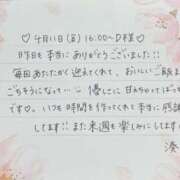 ♡4月11日(金)16:00〜D様♡
昨日も本当にありがとうございました!!
毎回あたたかく迎えてくれて、おいしいご飯まで
ごちそうになって…優しさに甘えちゃってばっかり
です♡。いつも時間を作ってくれて本当に感謝
してます!!また来週も楽しみにしてます
湊